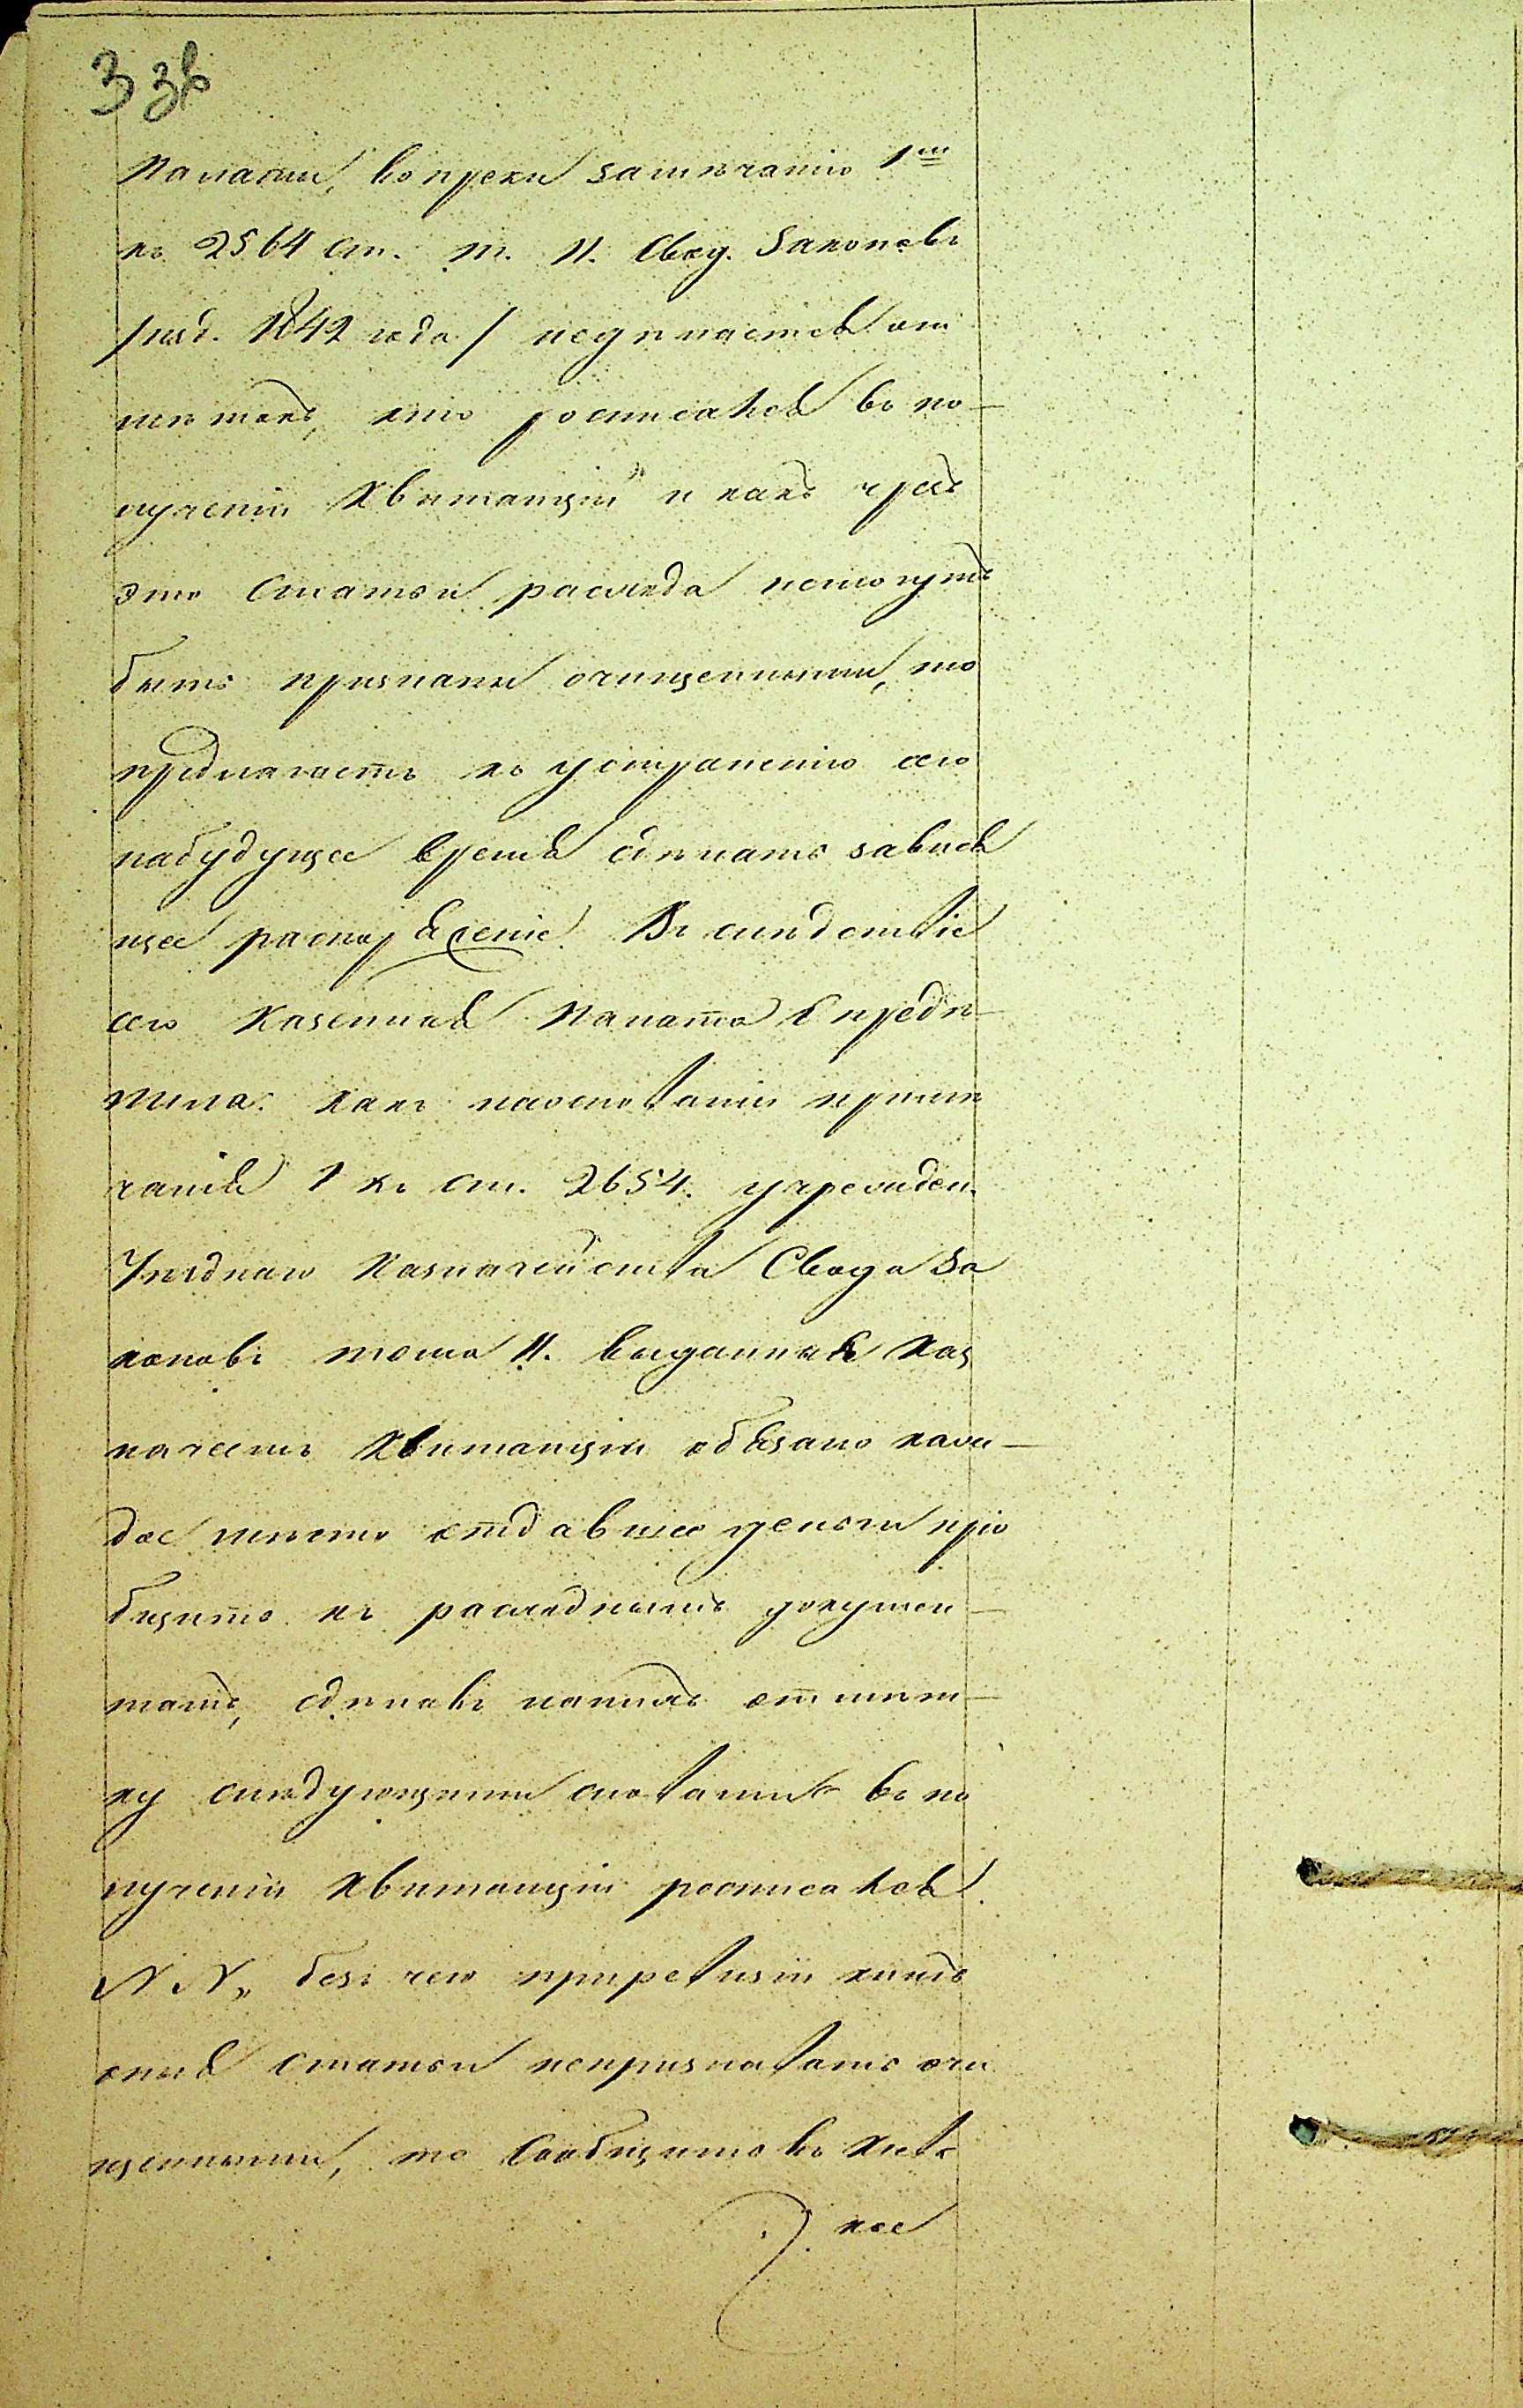 3 зв
Палаты, вопреки замечанію 1му
къ 2564 ст. т. II. Свод. Законовъ
/изд. 1842 года/ недѣлаетъ от
мѣтокъ, кто росписался въ по-
лученіи Квитанціи и какъ чрезъ
это Статьи расхода немогутъ
быть признаны очищенными, то
предлагаетъ къ устраненію сего
набудущее время сдѣлать завися
щее распоряженіе. Въ слѣдствіе
сего Казенная Палата Опредѣ-
лила: какъ наоснованіи примѣ
чанія 1 къ ст. 2654. учрежден.
Уѣзднаго Казначейства Свода За
коновъ тома II. выданныя Каз
начеемъ Квитанціи обязано каж-
дое мѣсто отдавшее деньги прі
общить къ расходнымъ докумен-
тамъ, сдѣлавъ нанихъ отмѣт-
ку слѣдующими словами въ по
лученіи Квитанціи росписался
N N„ безъ чего приревизіи книгъ
оныя Статьи непризнавать очи
щенными, то Сообщить въ Киев
кое